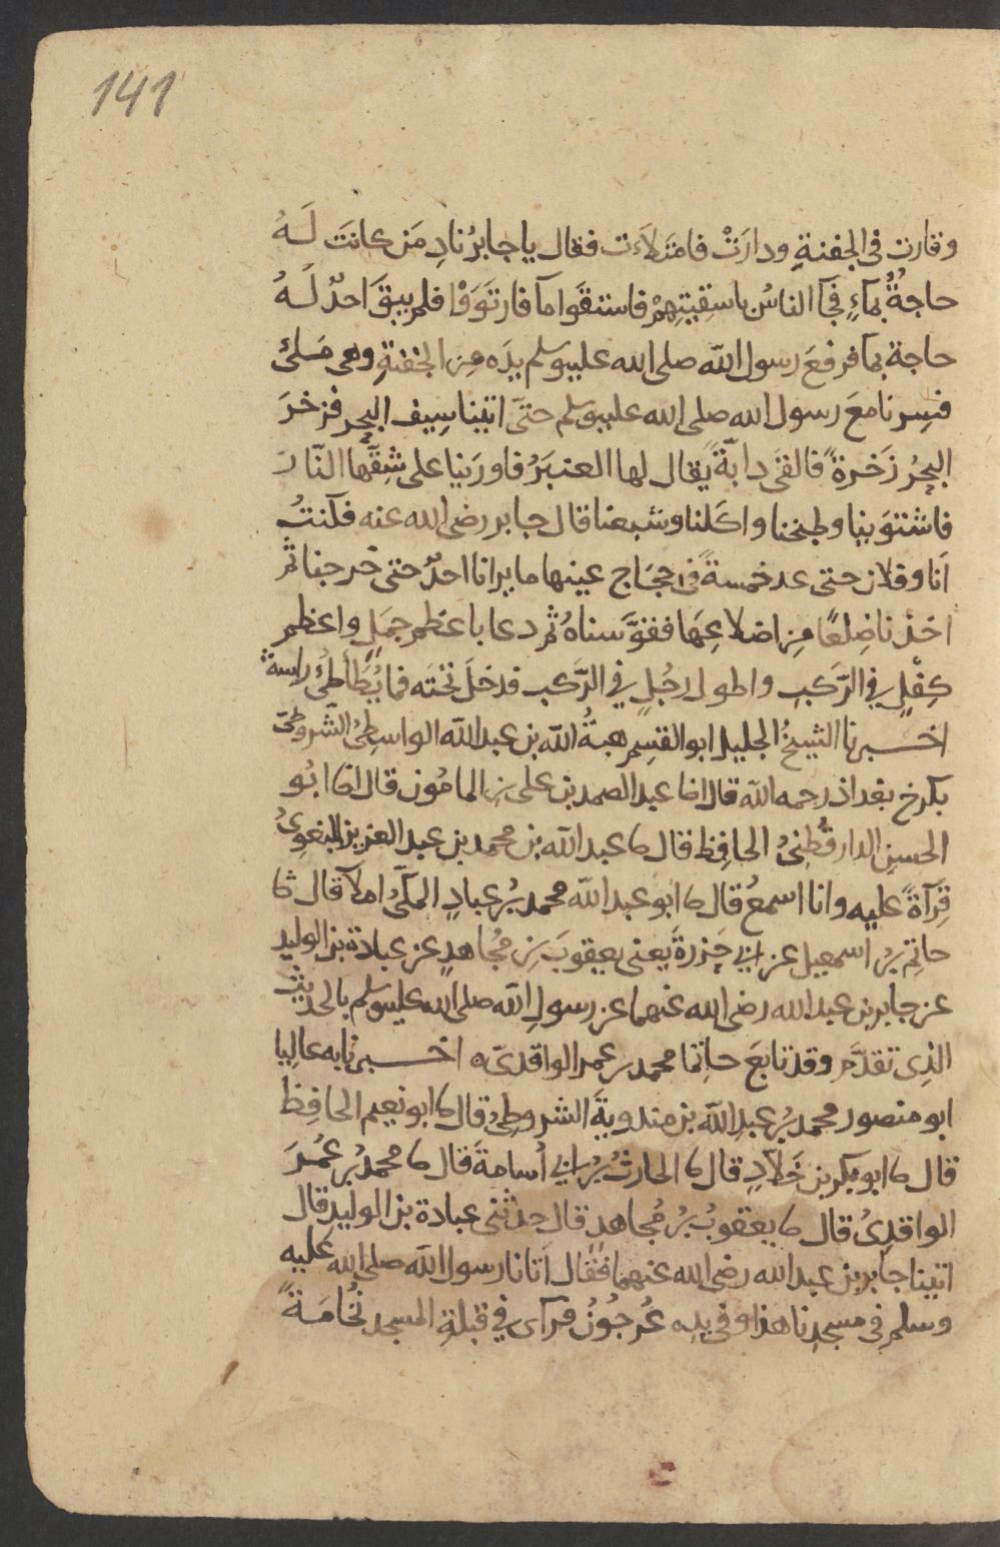 141
وقارت في الجفنةِ ودارَتْ فامتَلاَءت فقال يا جابرُ نادِ مَن كانتَ لَهُ
حاجةٌ بماءٍ فجآ الناسُ باسقِيتِهِمْ فاستقَوا مآ فارتوَوْا فلم يبقَ احدٌ لَهُ
حاجة بما فرفعَ رسول الله صلى الله عليه وسلم يدَه مِن الجفنةِ وهي مَلىٰ
فسِرنا معَ رسول الله صلى الله عليه وسلم حتّى اتينا سِيف البحر فزخرَ
البحرُ زَخرةً فالقىٰ دابّةً يقال لها العنبَرُ فاورَينا على شِقِّها النّارَ
فاشتوَينا وطبخنا واكَلنا وشبعنا قال جابر رضي الله عنه فكنتُ
اَنا وفلان حتى عد خمسةً في حجَاج عينها ما يرانا احدٌ حتى خرجنا ثم
اخذنا ضِلعًا مِن اضلاعِهَا فقوَّسناهُ ثم دعا باعظم جمَلٍ واعظم
كِفْلٍ في الرَّكبِ واطول رجُلٍ في الرَّكبِ فدخلَ تحتَه فما يُطَأطِئُ راسه
اخبرنا الشيخُ الجليل ابو القسِم هبةُ الله بن عبد الله الواسِطىُّ الشّروطىّ
بكرخ بغداذ رحمه الله قال انا عبد الصمد بن على بنِ المامُون قال انا ابُو
الحسين الدارقُطنىُّ الحافِظ قال نا عبد الله بن محمد بن عبد العزيز البغوِىُّ
قِرَآةً عليه وانا اسمعُ قال نا ابو عبد الله محمد بنُ عبادٍ المكّىُّ املآ قال نا
حاتِم بنُ اسمعيل عن ابي حَزرةَ يعنى يعقوبَ بنِ مجُاهدٍ عن عبادة بن الوليد
عن جابر بن عبد الله رضي الله عنهما عن رسولِ الله صلى الله عليه وسلم بالحديث
الذي تقدَّم وقد تابعَ حاتِما محمد بن عمر الواقدىّ ه اخبرنا به عالِيا
ابو منصور محمد بنُ عبدِ الله بن مندويةَ الشروطىُّ قال نا ابو نعيم الحافِظ
قال نا ابو بكر بن خَلَّادٍ قال نا الحارثُ بنُ ابي اُسامةَ قال نا محمد بنُ عُمرَ
الواقدِىُّ قال نا يعقوبُ بنُ مُجاهد قال حدثنى عبادة بن الوليد قال
اتينا جابر بن عبد الله رضي الله عنهما فقال اَتانا رسول الله صلى الله عليه
وسلم في مسجدِنا هذا وفي يدِه عُرجُونُ فرآى في قبلةِ المسجد نُخَامَةً